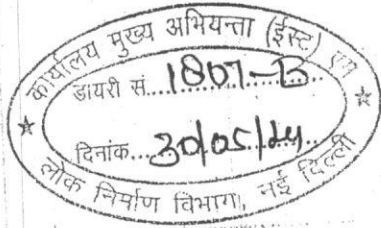 कार्यालय मुख्य अभियन्ता (ईस्ट) एम
डायरी सं....1807-B....
दिनांक...30/05/24...
लोक निर्माण विभाग, नई दिल्ली